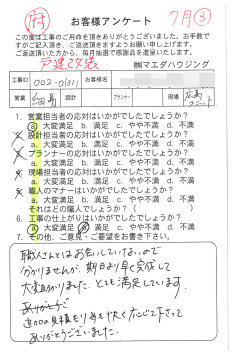 府
7月③
お客様アンケート
この度は工事のご用命を頂きありがとうございます。お手数で
すがご記入頂き、ご返送頂きますようお願い申し上げます。
ご返送頂いた方から、毎月抽選で感謝品を進呈します。
戸建改装
㈱マエダハウジング
工事ID 002-0(31) お客様名
営業 設計 プランナー 現場
1. 営業担当者の応対はいかがでしたでしょうか?
a 大変満足 b. 満足 c. やや不満 d. 不満
2. 設計担当者の応対はいかがでしたでしょうか?
a. 大変満足 b. 満足 c. やや不満 d. 不満
3. プランナーの応対はいかがでしたでしょうか?
a. 大変満足 b. 満足 c. やや不満 d. 不満
4. 現場担当者の応対はいかがでしたでしょうか?
a. 大変満足 b. 満足 c. やや不満 d. 不満
5. 職人のマナーはいかがでしたでしょうか?
a. 大変満足 b. 満足 c. やや不満 d. 不満
それはどの職人でしょうか?( )
6. 工事の仕上がりはいかがでしたでしょうか?
a. 大変満足 b. 満足 c. やや不満 d. 不満
7. その他、ご意見・ご要望をお書き下さい。
職人さんとはお会いしていないので
分かりませんが、期日より早く完成して
大変助かりました。とても満足しています。
ありがとうございました。